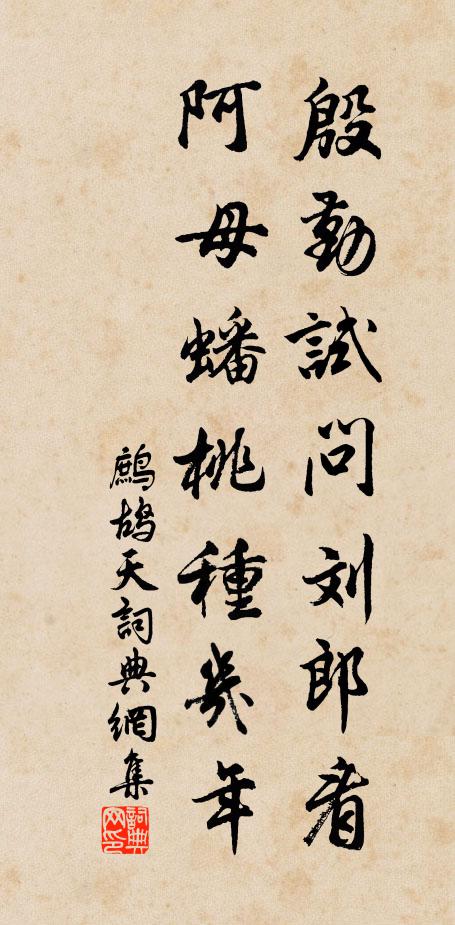 殷勤試問刘郎看
阿母蟠桃種幾年
鷓鴣天詞典網集
詞典网印